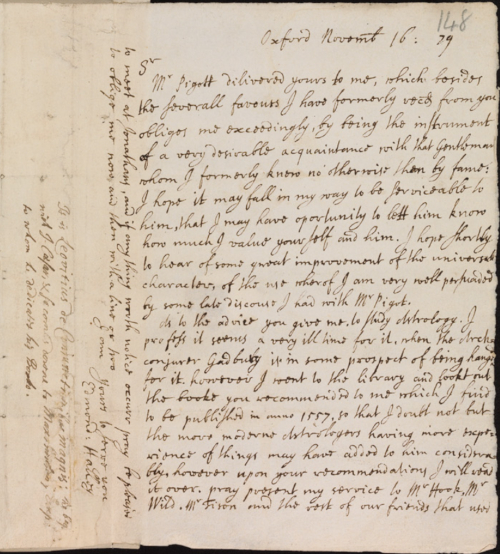 148
Oxford Novemb 16: 79
Sr
Mr Pigott delivered yours to me, which besides
the severall favours I have formerly recd from you
obliges me exceedingly, by being the instrument
of a very desirable acquaintance with that Gentleman
whom I formerly knew no otherwise then by fame:
I hope it may fall in my way to be serviceable to
him, that I may have oportunity to lett him know
how much I value your self and him. I hope shortly
to hear of some great improvement of the universal
character, of the use wherof I am very well perswaded
by some late discourse I had with Mr Pigot.
As to the advice you give me, to study Astrology. I
profess it seems a very ill time for it, when the
conjurer Gadbury is in some prospect of being hanged
for it. however I went to the library and lookt out
the booke you recommended to me which I find
to be published in anno 1557. so that I doubt not but
the more moderne Astrologers having more expe-
rience of things may have added to him considera-
bly, however upon your recommendations I will read
it over. pray present my service to Mr Hook, Mr
Wild, Mr Tison and the rest of our friends that uses
to meet at Jonathans, and if any thing worth notice occurr pray
to oblige me now and then with a line or two
Yours to serve you
Edmond: Halley
to whom to dedicate his Book.